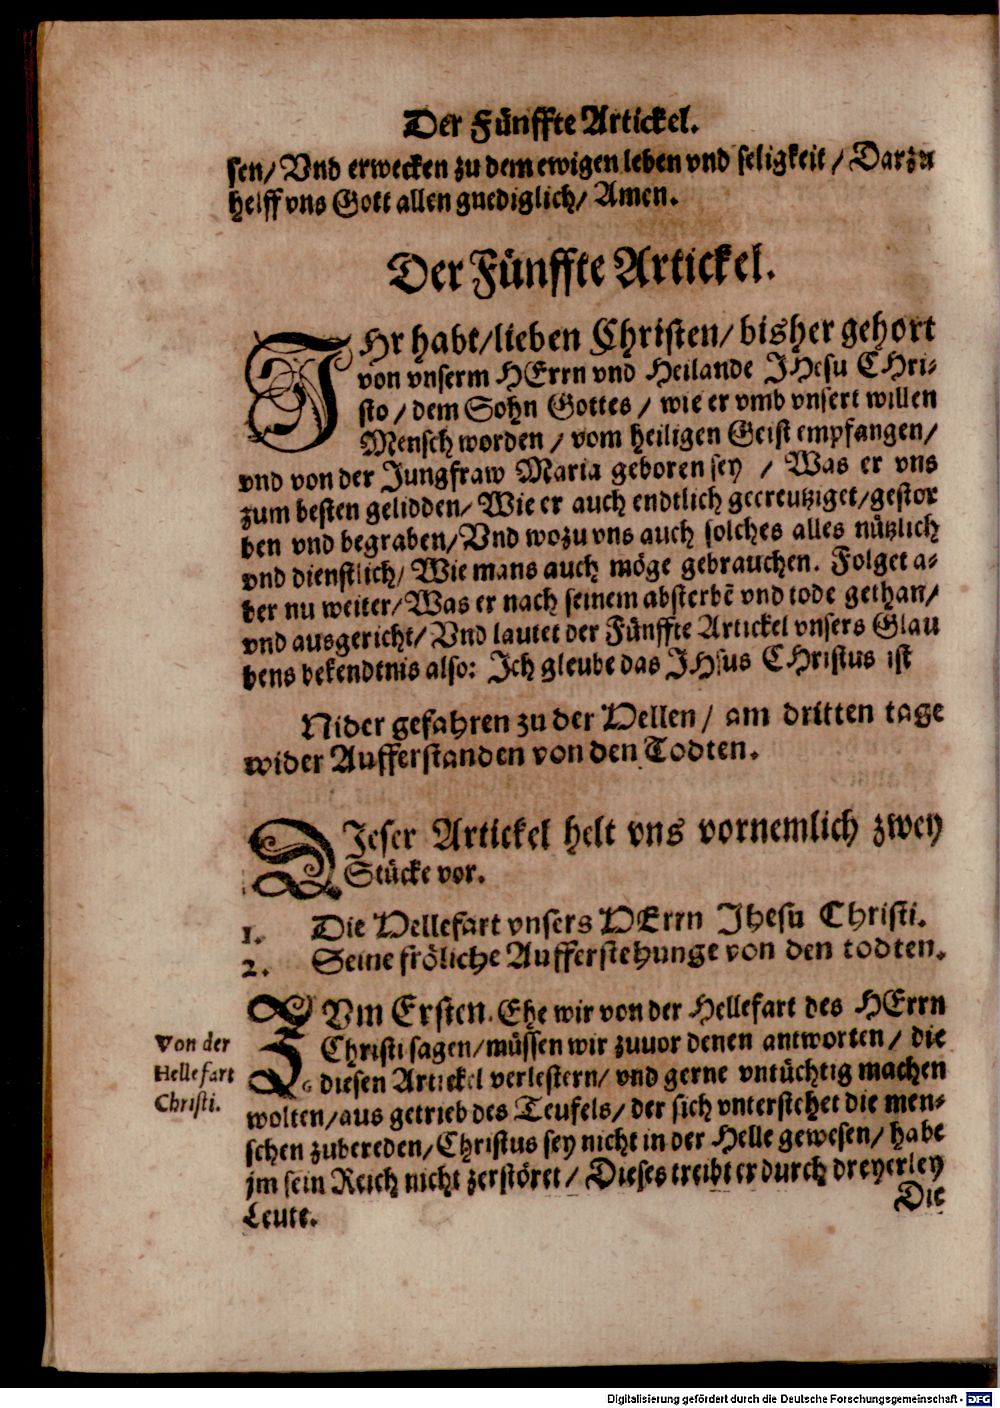 Der Fünffte Artickel.
sen/ Vnd erwecken zu dem ewigen leben vnd seligkeit / Darzu
helff vns Gott allen gnediglich/ Amen.
Der Fünffte Artickel.
IHr habt/lieben Christen/ bisher gehort
von vnserm HErrn vnd Heilande JHesu CHri-
sto / dem Sohn Gottes / wie er vmb vnsert willen
Mensch worden / vom heiligen Geist empfangen/
vnd von der Jungfraw Maria geboren sey / Was er vns
zum besten gelidden/ Wie er auch endtlich gecreutziget/gestor
ben vnd begraben/ Vnd wozu vns auch solches alles nützlich
vnd dienstlich/ Wie mans auch möge gebrauchen. Folget a-
ber nu weiter/ Was er nach seinem absterbē vnd tode gethan/
vnd ausgericht/ Vnd lautet der Fünffte Artickel vnsers Glau
bens bekendtnis also: Ich gleube das JHsus CHristus ist
Nider gefahren zu der Hellen / am dritten tage
wider Aufferstanden von den Todten.
DIeser Artickel helt vns vornemlich zwey
Stücke vor.
1. Die Hellefart vnsers HErrn Jhesu Christi.
2. Seine fröliche Aufferstehunge von den todten.
ZVm Ersten. Ehe wir von der Hellefart des HErrn
Von der
Hellefart
Christi.
Christi sagen/müssen wir zuuor denen antworten / die
diesen Artickel verlestern/ vnd gerne vntüchtig machen
wolten/aus getrieb des Teufels/ der sich vnterstehet die men-
schen zubereden/ Christus sey nicht in der Helle gewesen/ habe
jm sein Reich nicht zerstöret / Dieses treibt er durch dreyerley
Leute.
Die
Digitalisierung gefördert durch die Deutsche Forschungsgemeinschaft - DFG